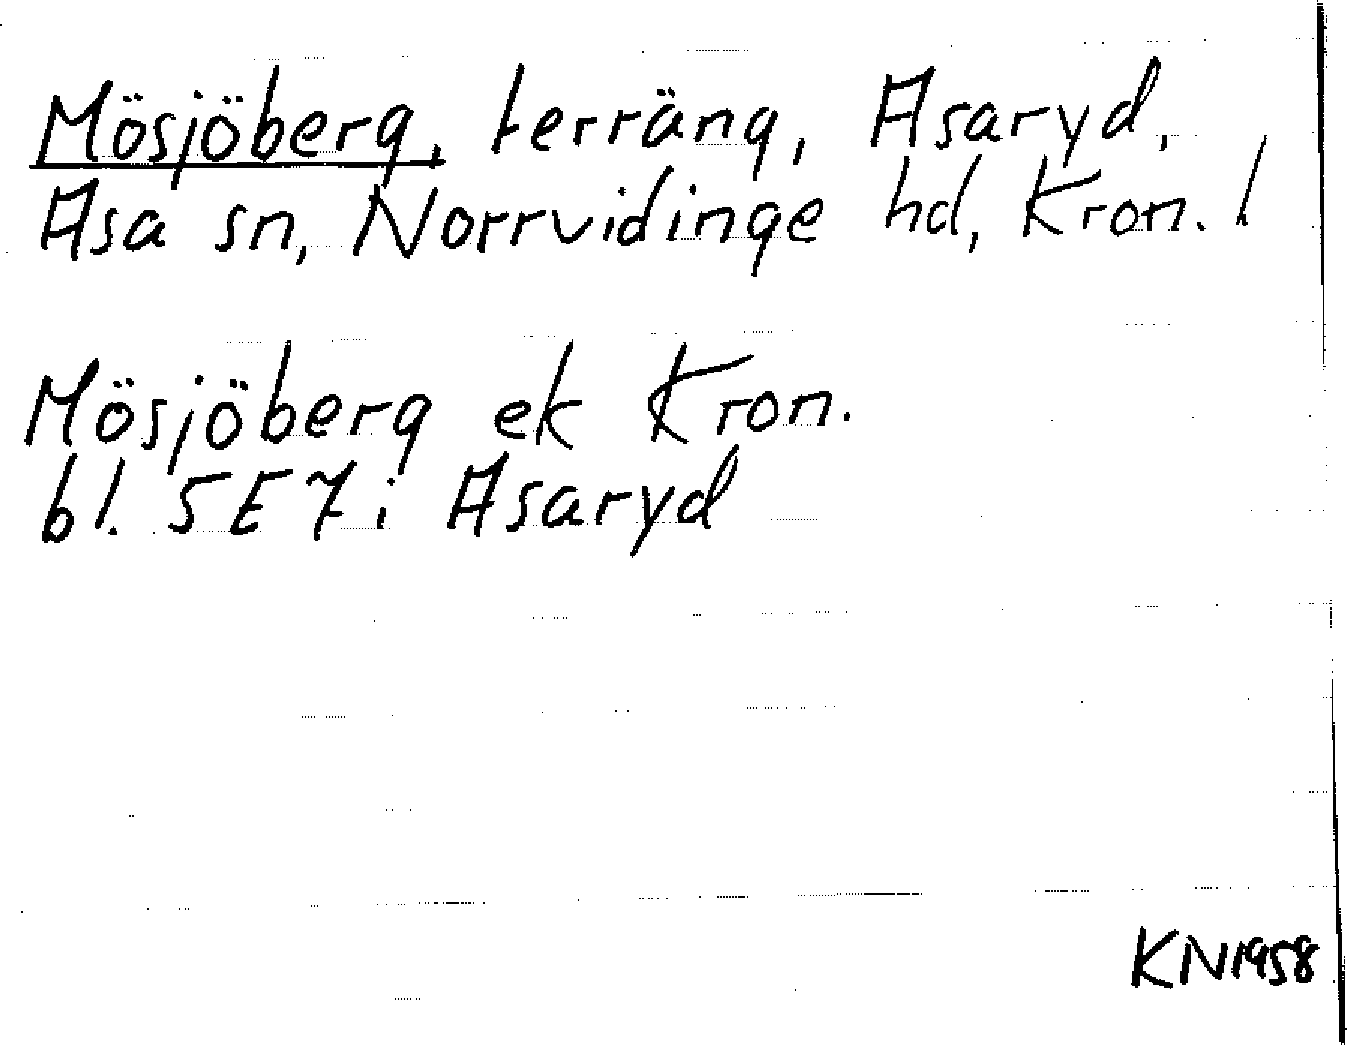 Mösjöberg, terräng, Asaryd,
Asa sn, Norrvidinge hd, Kron. l
Mösjöberg ek Kron.
bl. 5E7i Asaryd
KN1958